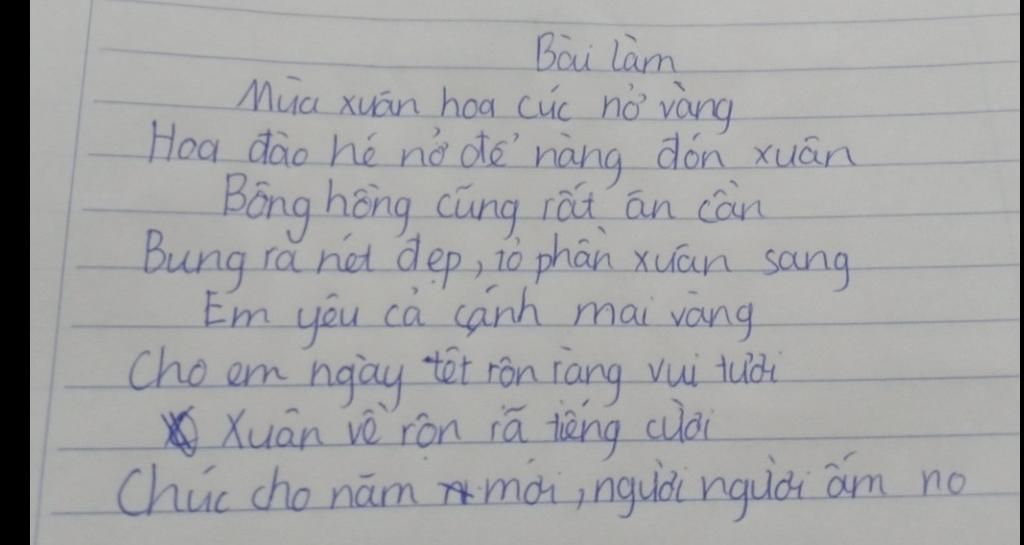 Bài làm
Mùa xuân hoa cúc nở vàng
Hoa đào hé nở để nàng đón xuân
Bông hồng cũng rất ân cần
Bung ra nét đẹp, tô phần xuân sang
Em yêu cả cánh mai vàng
Cho em ngày tết rộn ràng vui tươi
Xuân về rộn rã tiếng cười
Chúc cho năm mới, người người ấm no